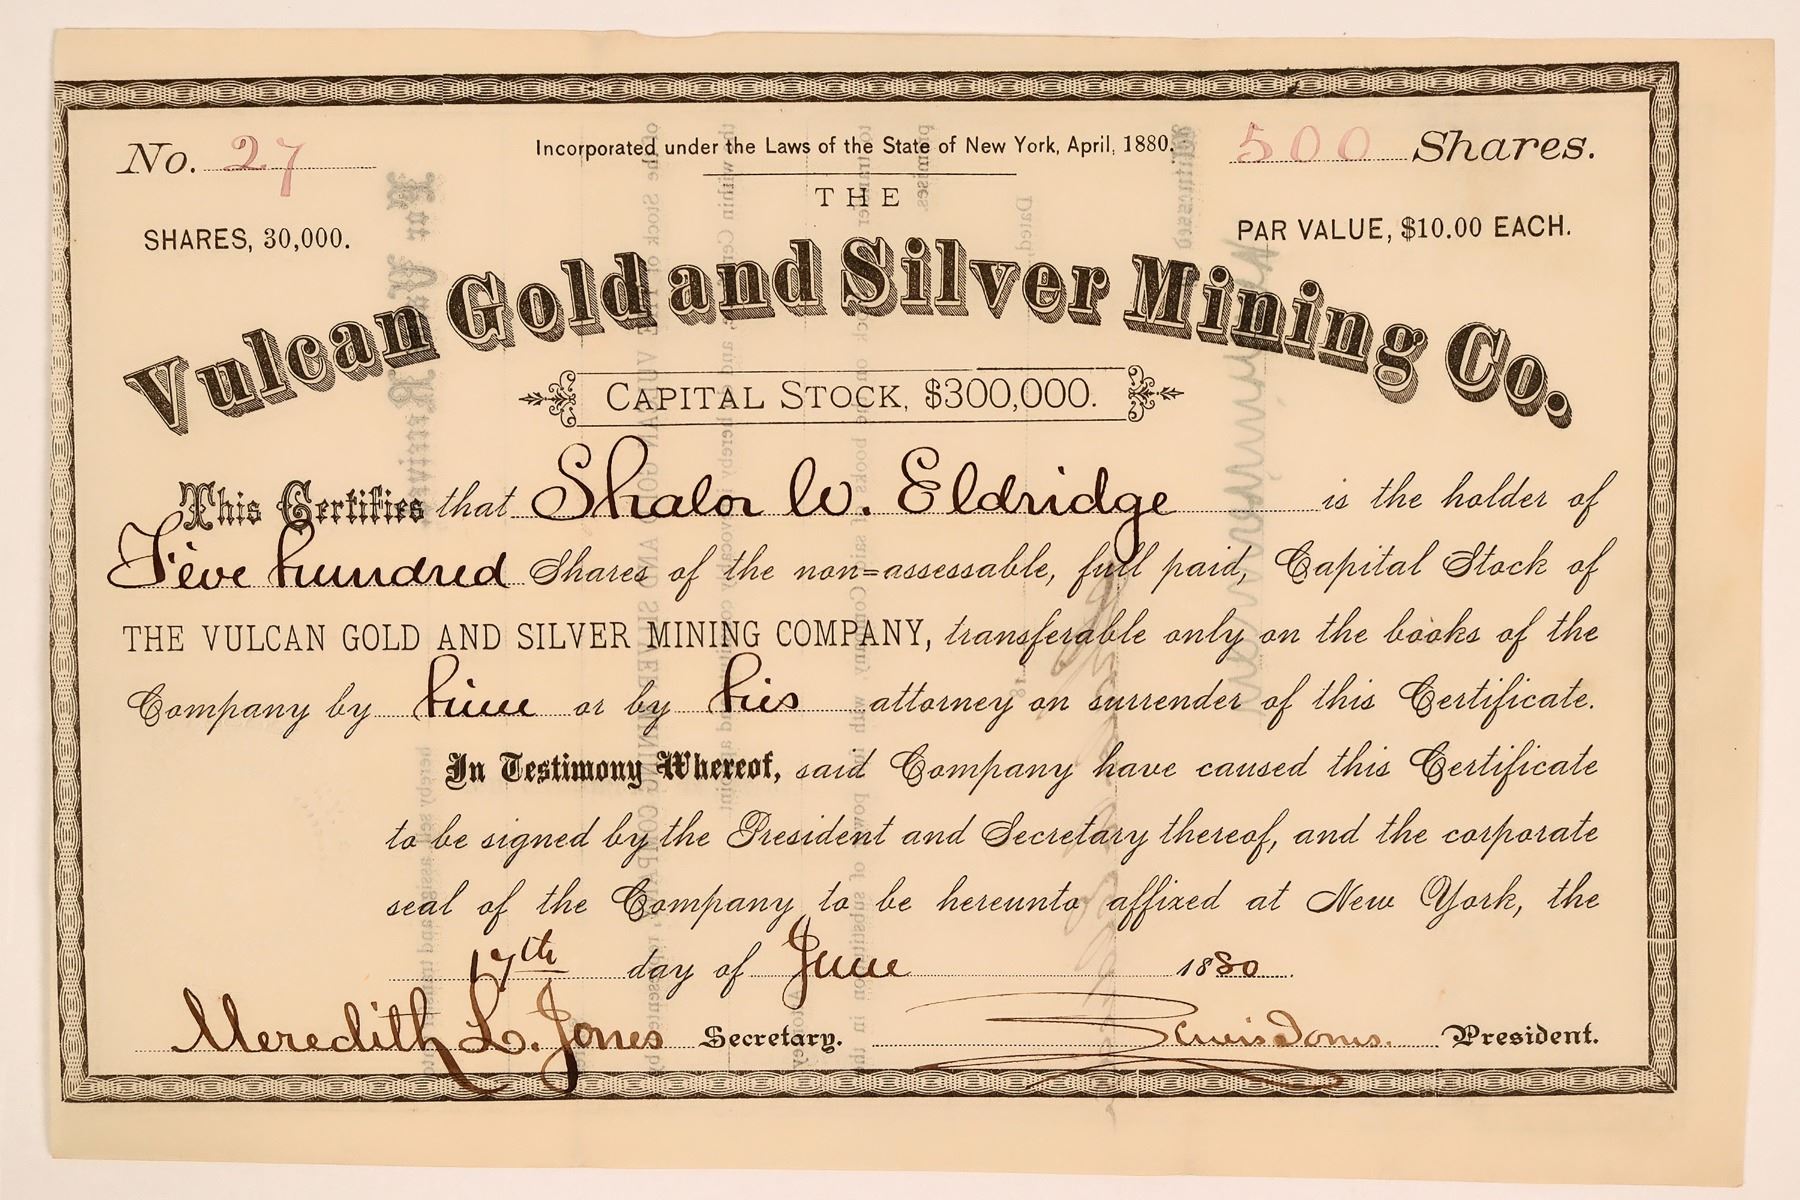 No. 27
Incorporated under the Laws of the State of New York, April, 1880.
500 Shares.
SHARES, 30,000.
THE
PAR VALUE, $10.00 EACH.
Vulcan Gold and Silver Mining Co.
CAPITAL STOCK, $300,000.
This Certifies that Shalor W. Eldridge is the holder of
Five hundred Shares of the non=assessable, full paid, Capital Stock of
THE VULCAN GOLD AND SILVER MINING COMPANY, transferable only on the books of the
Company by him or by his attorney on surrender of this Certificate.
In Testimony Whereof, said Company have caused this Certificate
to be signed by the President and Secretary thereof, and the corporate
seal of the Company to be hereunto affixed at New York, the
17th day of June 1880
Meredith L. Jones Secretary. Jones. President.